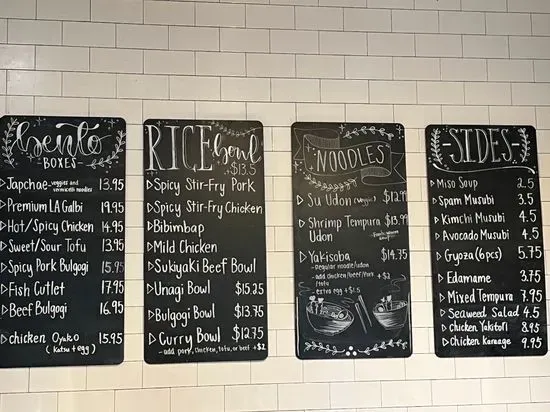 bento
BOXES
Japchae veggies and vermicelli noodles 13.95
Premium LA Galbi 19.95
Hot/Spicy Chicken 14.95
Sweet/Sour Tofu 13.95
Spicy Pork Bulgogi 15.95
Fish Cutlet 17.95
Beef Bulgogi 16.95
chicken Oyako 15.95
(katsu + egg)
RICE bowl
$13.5
Spicy Stir-Fry Pork
Spicy Stir-Fry Chicken
Bibimbap
Mild Chicken
Sukiyaki Beef Bowl
Unagi Bowl $15.25
Bulgogi Bowl $13.75
Curry Bowl $12.75
- add pork, chicken, tofu, or beef +$2
NOODLES
Su Udon (veggie) $12.99
Shrimp Tempura $13.99
Udon
Yakisoba $14.75
- Regular noodle/udon
- add chicken/beef/pork +$2
/tofu
- extra egg +$1.5
-SIDES-
Miso Soup 2.5
Spam Musubi 3.5
Kimchi Musubi 4.5
Avocado Musubi 4.5
Gyoza (6pcs) 5.75
Edamame 3.75
Mixed Tempura 7.95
Seaweed Salad 4.5
chicken Yakitori 8.95
Chicken Karaage 9.95